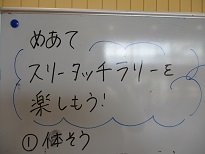 めあて
スリータッチラリーを
楽しもう!
①体そう